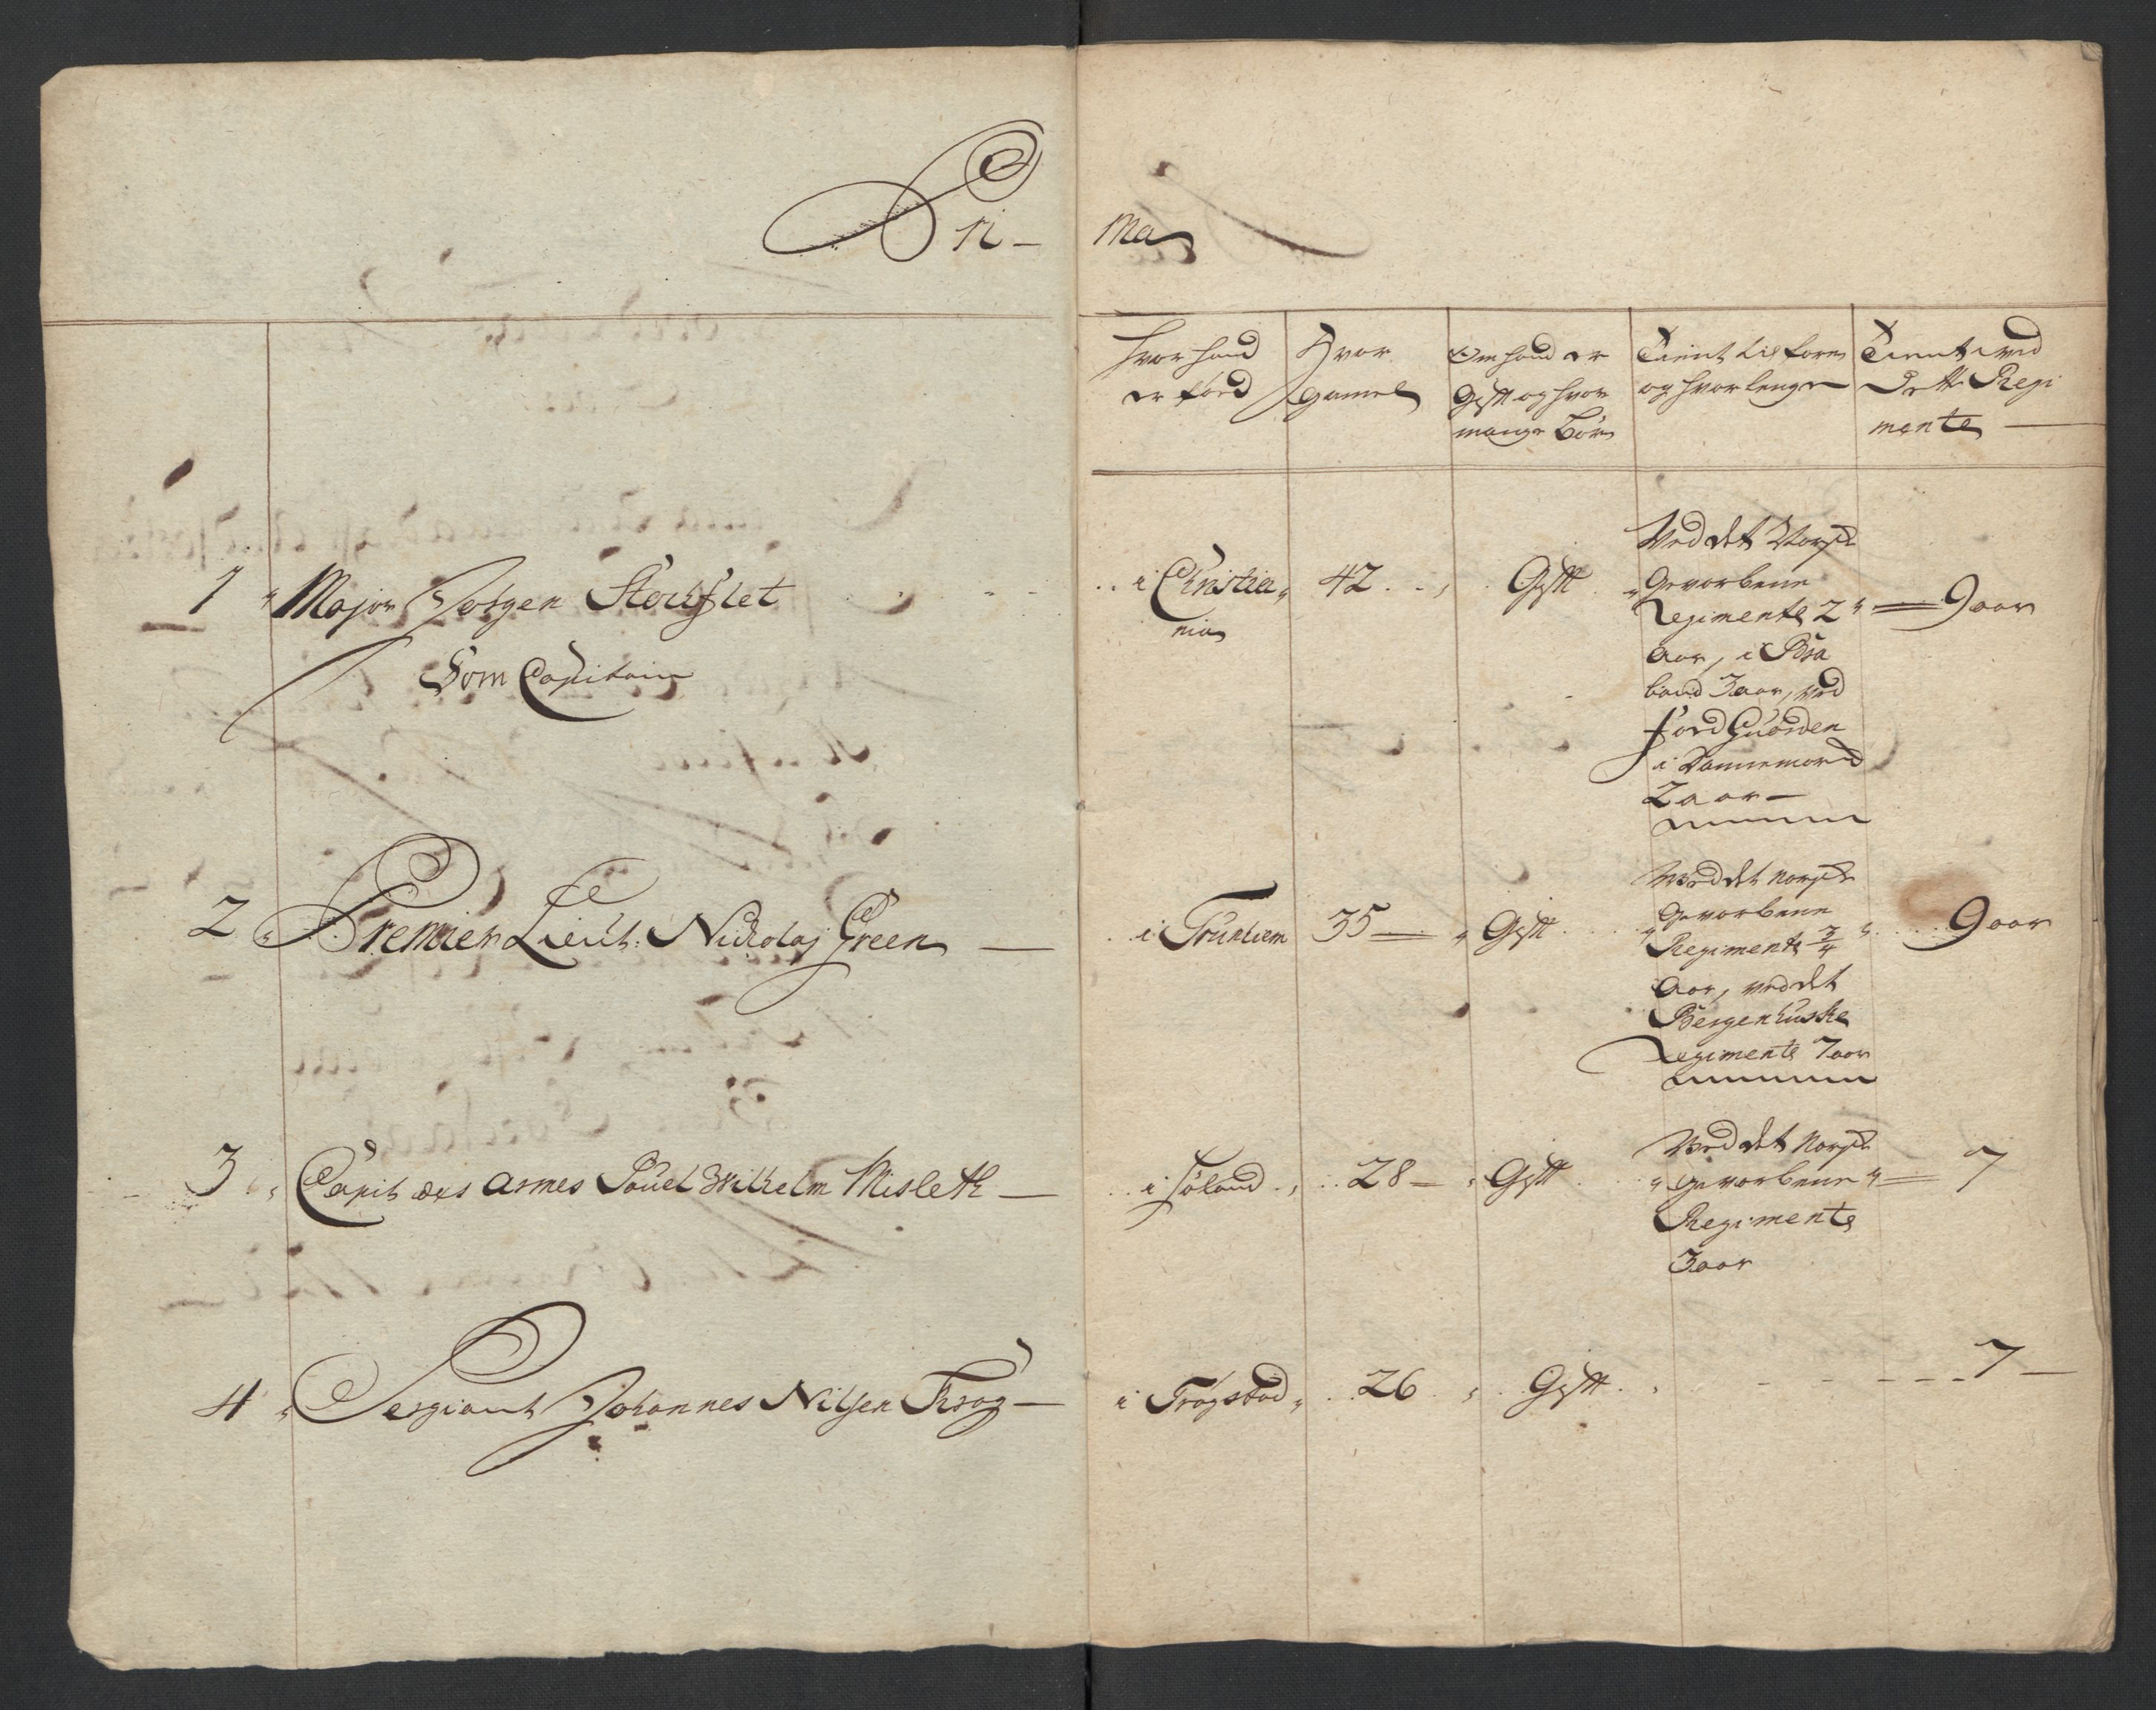 Pri-
ma
Hvor hand
er föed
Hvor
gamel
Om hand er
Gift og hvor
mange Börn
Tient tilforn
og hvor lenge
Tient ved
Dette Regi
mente
1 Major Jörgen Stochflet
Som Capitain
i Christia
nia
42
Gift
Ved det Norske
Gevorbene
Regimente 2
Aar, i Bra
band 3 aar, ved
i Dannemarck
2 aar
9 aar
2 Premier Lieut: Nickolaj Green
i Trunhiem
35
Gift
Ved det Norske
Gevorbene
Regimente 3/4
Aar, ved det
Bergenhuske
Regimente 7 aar
9 aar
3 Capit des Armes Pouel Wilhelm Misleth
i Höland
28
Gift
Ved det Norske
gevorbene
Regimente
3 aar
7
4 Sergiant Johannes Nilsen Krog
i Trögstad
26
Gift
7